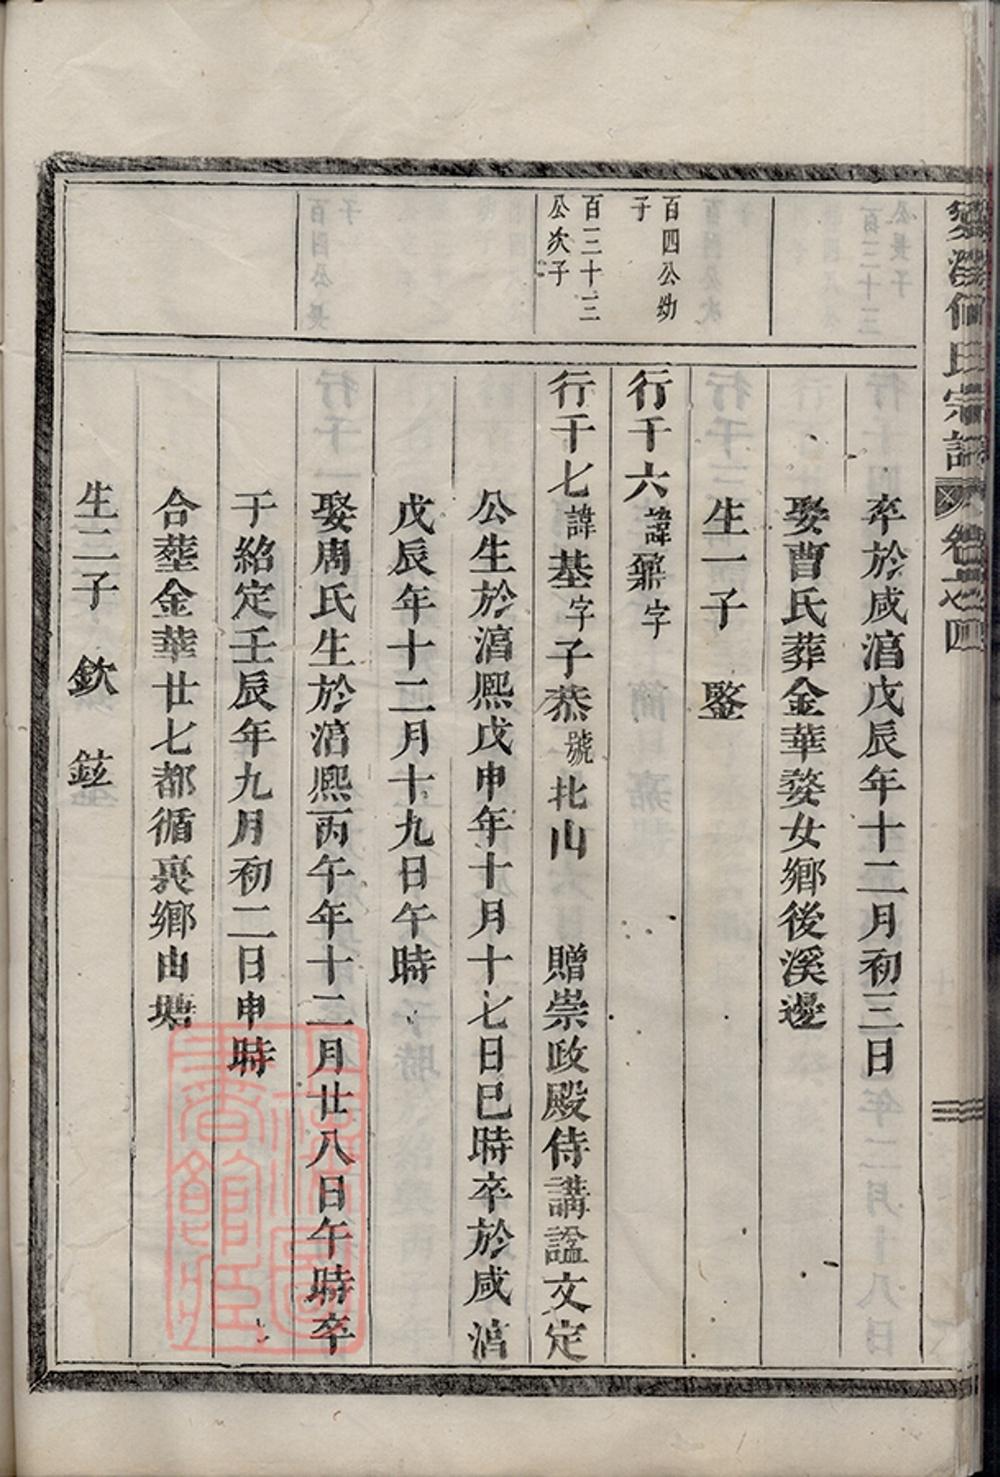 何氏宗譜
卒於咸淳戊辰年十二月初三日
娶曹氏葬金華婺女鄉後溪邊
生一子 鋻
百四公幼
子
行千六諱鼐字
百三十三
公次子
行千七諱基字子恭號北山 贈崇政殿侍講謚文定
公生於淳熙戊申年十月十七日巳時卒於咸淳
戊辰年十二月十九日午時
娶周氏生於淳熙丙午年十二月廿八日午時卒
于紹定壬辰年九月初二日申時
合塟金華廿七都循裏鄉由塘
生二子 欽 鉉